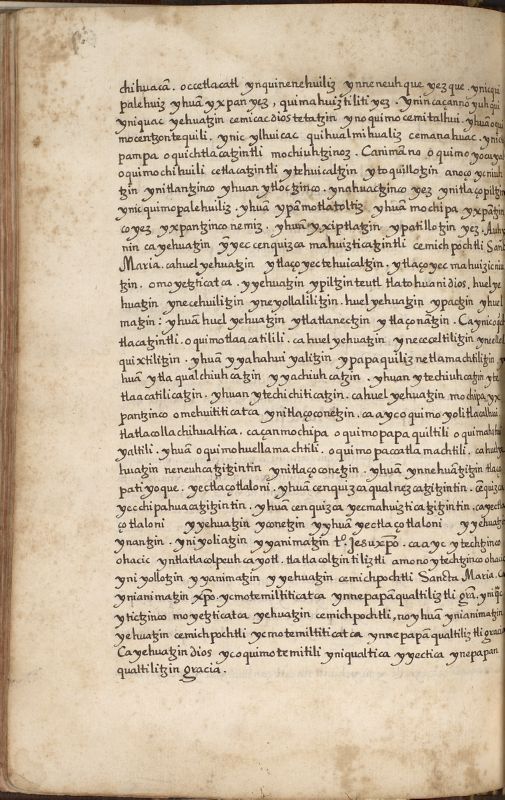 chihuacā. occetlacatl ynquinenehuiliz ynneneuhque yezque. ynicqui
palehuiz yhuā yxpan yez, quimahuiztiliti yez. ynincaçannō yuhqui
yniquac yehuatzin cemicac dios tetatzin ynoquimocemitalhui. yhuā oqui
mocentzontequili. ynic ylhuicac quihualmihualiz cemanahuac. ynic
pampa oquichtlacatzintli mochiuhtzinoz. Canimanno oquimo
oquimochihuili cetlacatzintli ytehuicaltzin ytoquillotzin anoço ycniuh
tzin ynitlantzinco yhuan ytloctzinco. ynahuactzinco yez ynitlaçopiltzin
ynicquimopalehuiliz. yhuā ypāmotlatoltiz yhuā mochipa yxpātzin
coyez yxpantzinco nemiz. yhuā yxiptlatzin ypatillotzin yez. Auh
nin ca yehuatzin yyec cenquizca mahuizticatzintli cemichpochtli Sanct
Maria. cahuel yehuatzin ytlaçoyectehuicaltzin. ytlaçoyecmahuizicniuh
tzin. omoyetzticatca. yyehuatzin ypiltzin teutl tlatohuani dios. huel ye
huatzin ynecehuiliztzin yneyollaliliztzin. huel yehuatzin ypactzin yhuel
matzin: yhuā huel yehuatzin ytlatlanectzin ytlaçonātzin. Caynic
tlacatzintli. oquimotlacatilili. ca huel yehuatzin ynececeltiliztzin ynecelel
quixtiliztzin. yhuā yyahahuiyaliztzin ypapaquiliz netlamachtiliztzin. y
huā ytlaqualchiuhcatzin yyachiuhcatzin. yhuan ytechiuhcatzin yte
tlacatilicatzin. yhuan ytechichiticatzin. cahuel yehuatzin mochipa yx
pantzinco omehuititicatca ynitlaçoconetzin. caayc oquimoyolitlacalhui.
tlatlacollachihualtica. caçanmochipa oquimopapaquiltili oquimahahui
yaltili. yhuā oquimohuellamachtili. oquimopaccatlamachtili. cahuelye
huatzin neneuhcatzitzintin ynitlaçoconetzin. yhuā ynnehuātzitzin tlaço
patiyoque. yectlaçotlaloni. yhuā cenquizca qualnezcatzitzintin. cēquizca
yecchipahuacatzitzintin. yhuā cenquizca yecmahuizticatzitzintin. cayectla
çotlaloni yyehuatzin yconetzin yyhuā yectlaçotlaloni yyehuatzin
ynantzin. yniyoliatzin yyanimatzin t.º Jesu xp̄o. caayc ytechtzinco
ohacic yntlatlacolpeuhcayotl. tlatlacoltzintiliztli amono ytechtzinco ohacic
yniyollotzin yyanimatzin yyehuatzin cemichpochtli Sancta Maria. Ca
ynianimatzin xp̄o. ycmotemiltiticatca ynnepapāqualtiliztli grā. yniquac
yticTzinco moyetzticatca yehuatzin cemichpochtli, noyhuā ynianimatzin
yehuatzin cemichpochtli ycmotemiltiticatca ynnepapāqualtiliztli gracia
Ca yehuatzin dios ycoquimotemitili yniqualtica yyectica ynepapan
qualtiliztzin gracia.